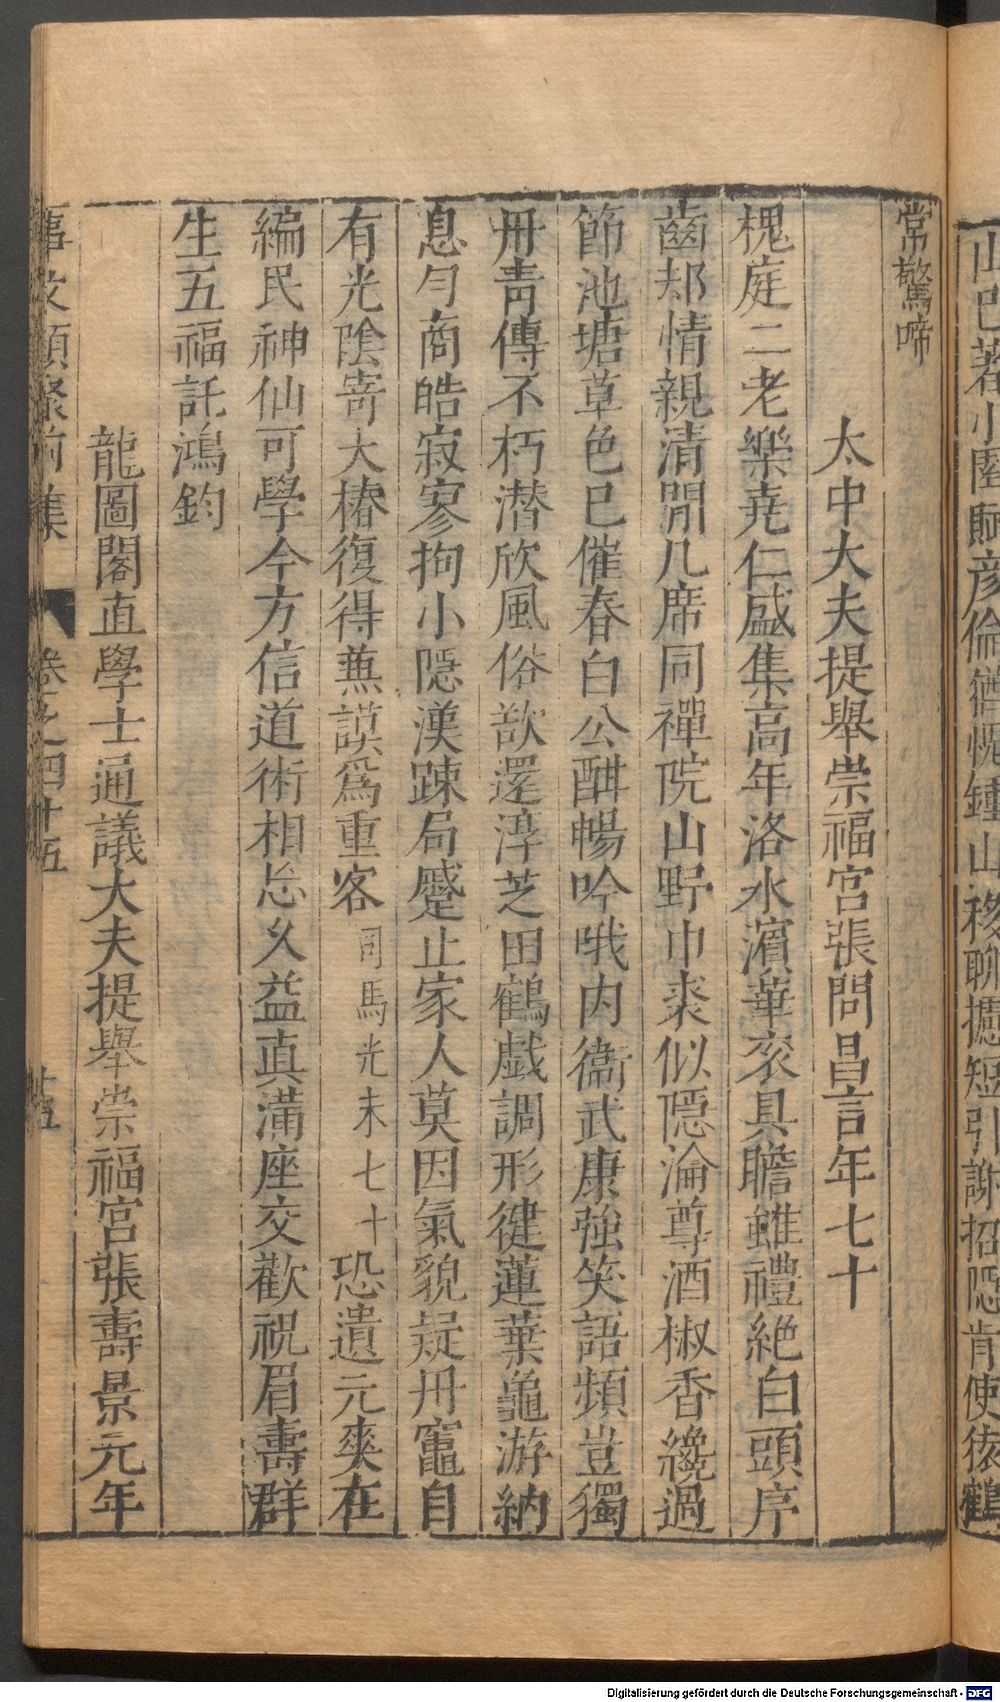 山巴著小園賦彦倫猶愧鍾山移聊攄短引謝招隠肯使猿鶴
常驚啼
太中大夫提舉崇福宮張問昌言年七十
槐庭二老樂堯仁盛集高年洛水濵華衮具瞻雖禮絶白頭序
齒却情親清閒几席同禪院山野巾裘似隠淪尊酒椒香纔過
節池塘草色已催春白公酣暢吟哦内衞武康強笑語頻豈獨
丹青傳不朽潜欣風俗歆還淳芝田鶴戯調形徤蓮葉龜游納
息勻商皓寂寥拘小隠漢踈局蹙止家人莫因氣貌疑丹竈自
有光陰寄大椿復得蕪謨爲重客司馬光未七十恐遺元爽在
編民神仙可學今方信道術相忘久益真滿座交歡祝眉壽群
生五福託鴻鈞
龍圖閣直學士通議大夫提舉崇福宮張壽景元年
事文類聚前集 卷之四十五
Digitalisierung gefördert durch die Deutsche Forschungsgemeinschaft - DFG